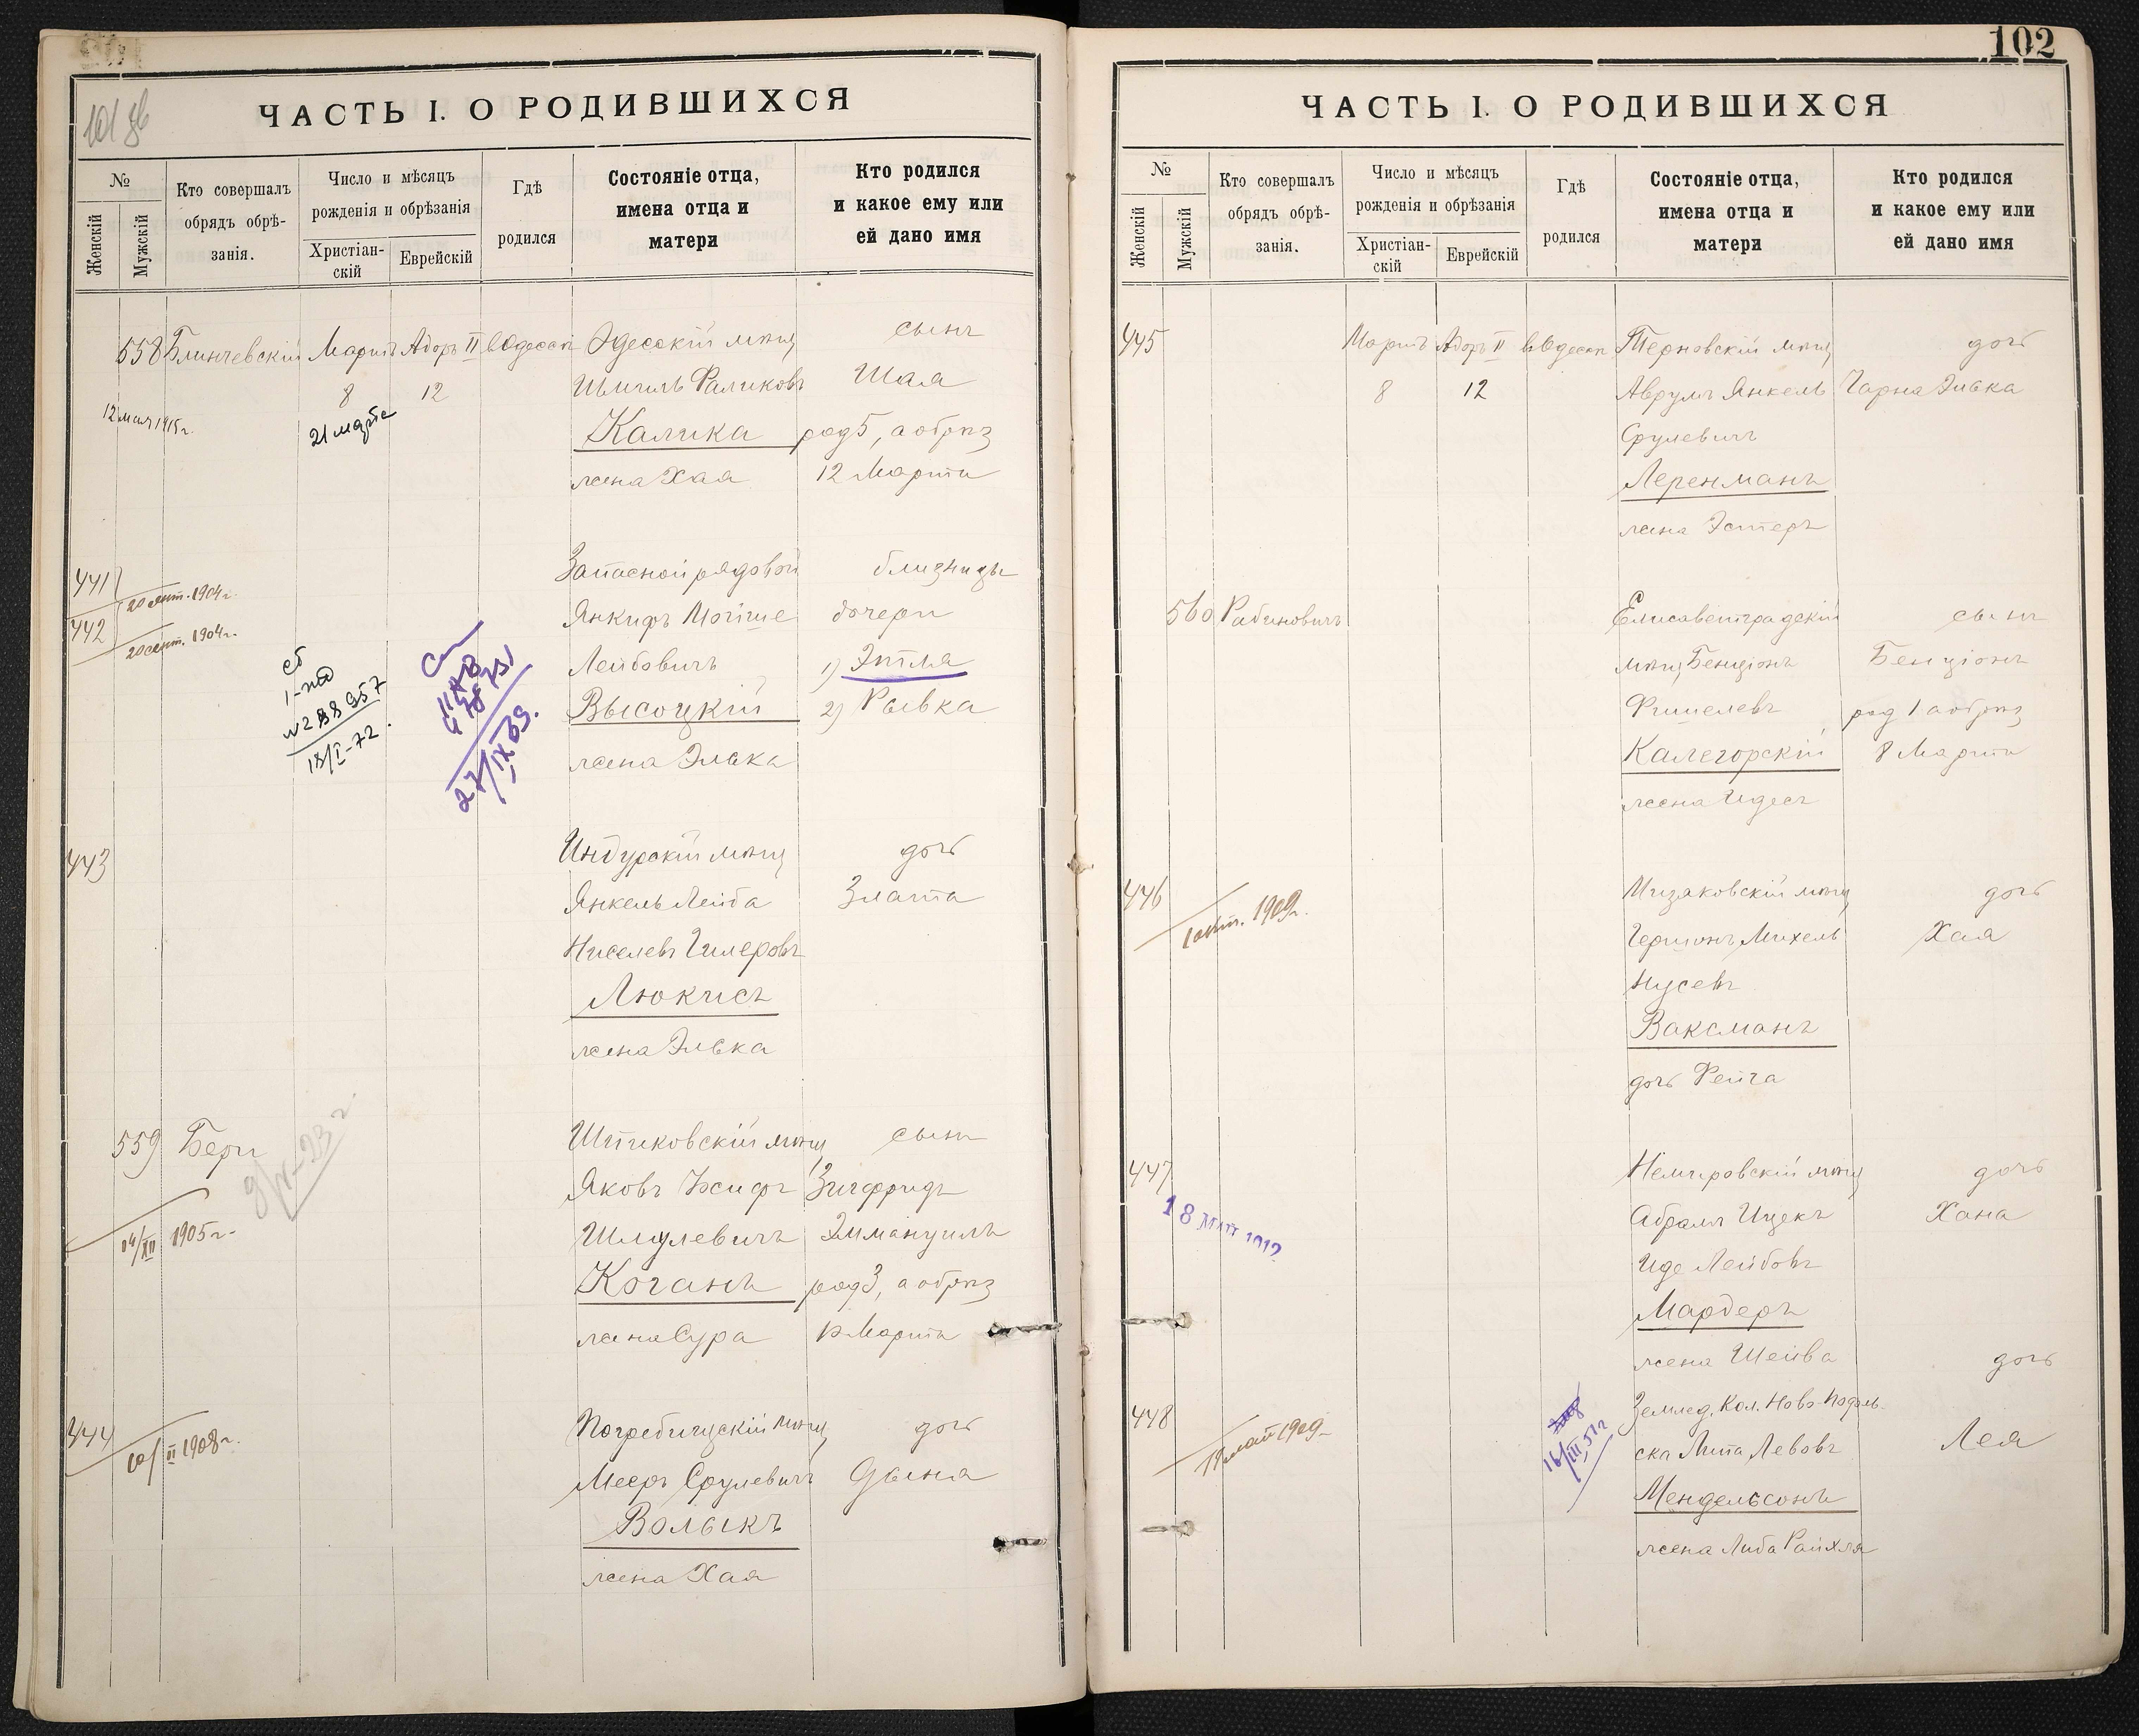 101 об
ЧАСТЬ I. О РОДИВШИХСЯ
№
Женскій
Мужскій
Кто совершалъ
обрядъ обрѣ-
занія.
Число и мѣсяцъ
рожденія и обрѣзанія
Христіан-
скій
Еврейскій
Гдѣ
родился
Состояніе отца,
имена отца и
матери
Кто родился
и какое ему или
ей дано имя
558 Блинчевскій Мартъ Адоръ II въ Одессѣ Одесскій мѣщ сынъ
8 12 Фаликовъ Шая
12 мая 1915 г. 21 марта Калика род 5, а обрѣз
жена Хая 12 Марта
441 Запасной рядовой близнецы
20 сент. 1904 г.
442 Янкифъ Мойше дочери
20 сент. 1904 г.
Лейбовичъ 1) Этля
Высоцкій 2) Рывка
жена Элька
18/I-72.
27/IX 39.
443 Индурскій мѣщ дочь
Янкель Лейба Злата
Ниселевъ Гилеровъ
Люкисъ
жена Элька
559 Бери Шпиковскій мѣщ сынъ
Яковъ Іосифъ Зигфридъ
14/XII 1905 г. Шмулевичъ Эммануилъ
Коганъ род 3, а обрѣз
жена Сура Марта
444 Погребищскій мѣщ дочь
10/II 1908 г. Мееръ Срулевичъ Дына
Волыкъ
жена Хая
102
ЧАСТЬ I. О РОДИВШИХСЯ
№
Женскій
Мужскій
Кто совершалъ
обрядъ обрѣ-
занія.
Число и мѣсяцъ
рожденія и обрѣзанія
Христіан-
скій
Еврейскій
Гдѣ
родился
Состояніе отца,
имена отца и
матери
Кто родился
и какое ему или
ей дано имя
445 Мартъ Адоръ II въ Одессѣ Терновскій мѣщ дочь
8 12 Аврумъ Янкель Чарна Элька
Срулевичъ
Леренманъ
жена Эстеръ
560 Рабиновичъ Елисаветградскій сынъ
мѣщ Бенціонъ Бенціонъ
Фишелевъ род 1 а обрѣз
Калегорскій 8 Марта
жена Идесъ
446 Мизяковскій мѣщ дочь
1 окт. 1909 г. Гершонъ Михель Хая
Нусевъ
Ваксманъ
дочь Рейза
447 Немировскій мѣщ дочь
18 МАЙ 1912 Абрамъ Ицекъ Хана
Иде Лейбовъ
Мардеръ
жена Шейва дочь
448 Землед. Кол. Ново-Подоль-
19 май 1909 16/III 51 г ска Липа Левовъ Лея
Мендельсонъ
жена Либа Райхля